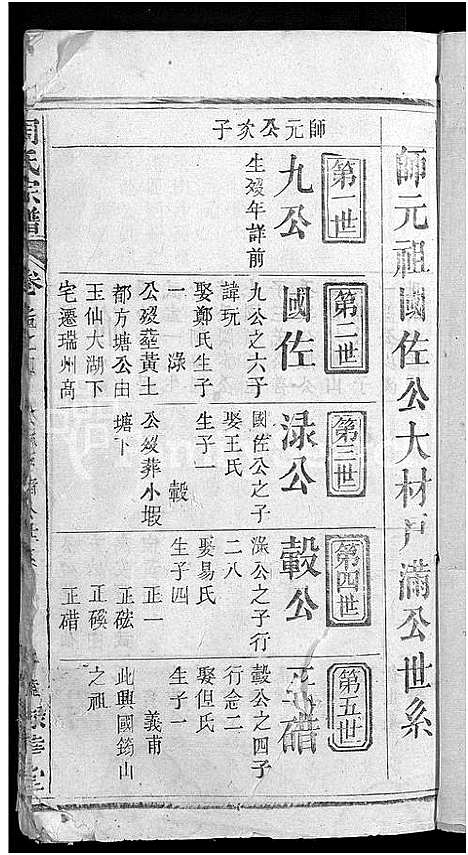 師元祖國佐公大材戶滿公世系
師元公次子
第一世
九公
生歿年詳前
第二世
國佐
九公之六子
諱玩
娶鄭氏生子
一 淥
公歿葬黃土
都方塘公由
玉仙大湖下
宅遷瑞州高
第三世
淥公
國佐公之子
娶王氏
生子一
轂
公歿葬小塅
塘下
第四世
轂公
淥公之子行
二八
娶易氏
生子四
正一
正硋
正磎
正碏
第五世
正碏
轂公之四子
行念二
娶但氏
生子一
義甫
此興國筠山
之祖
周氏宗譜
卷